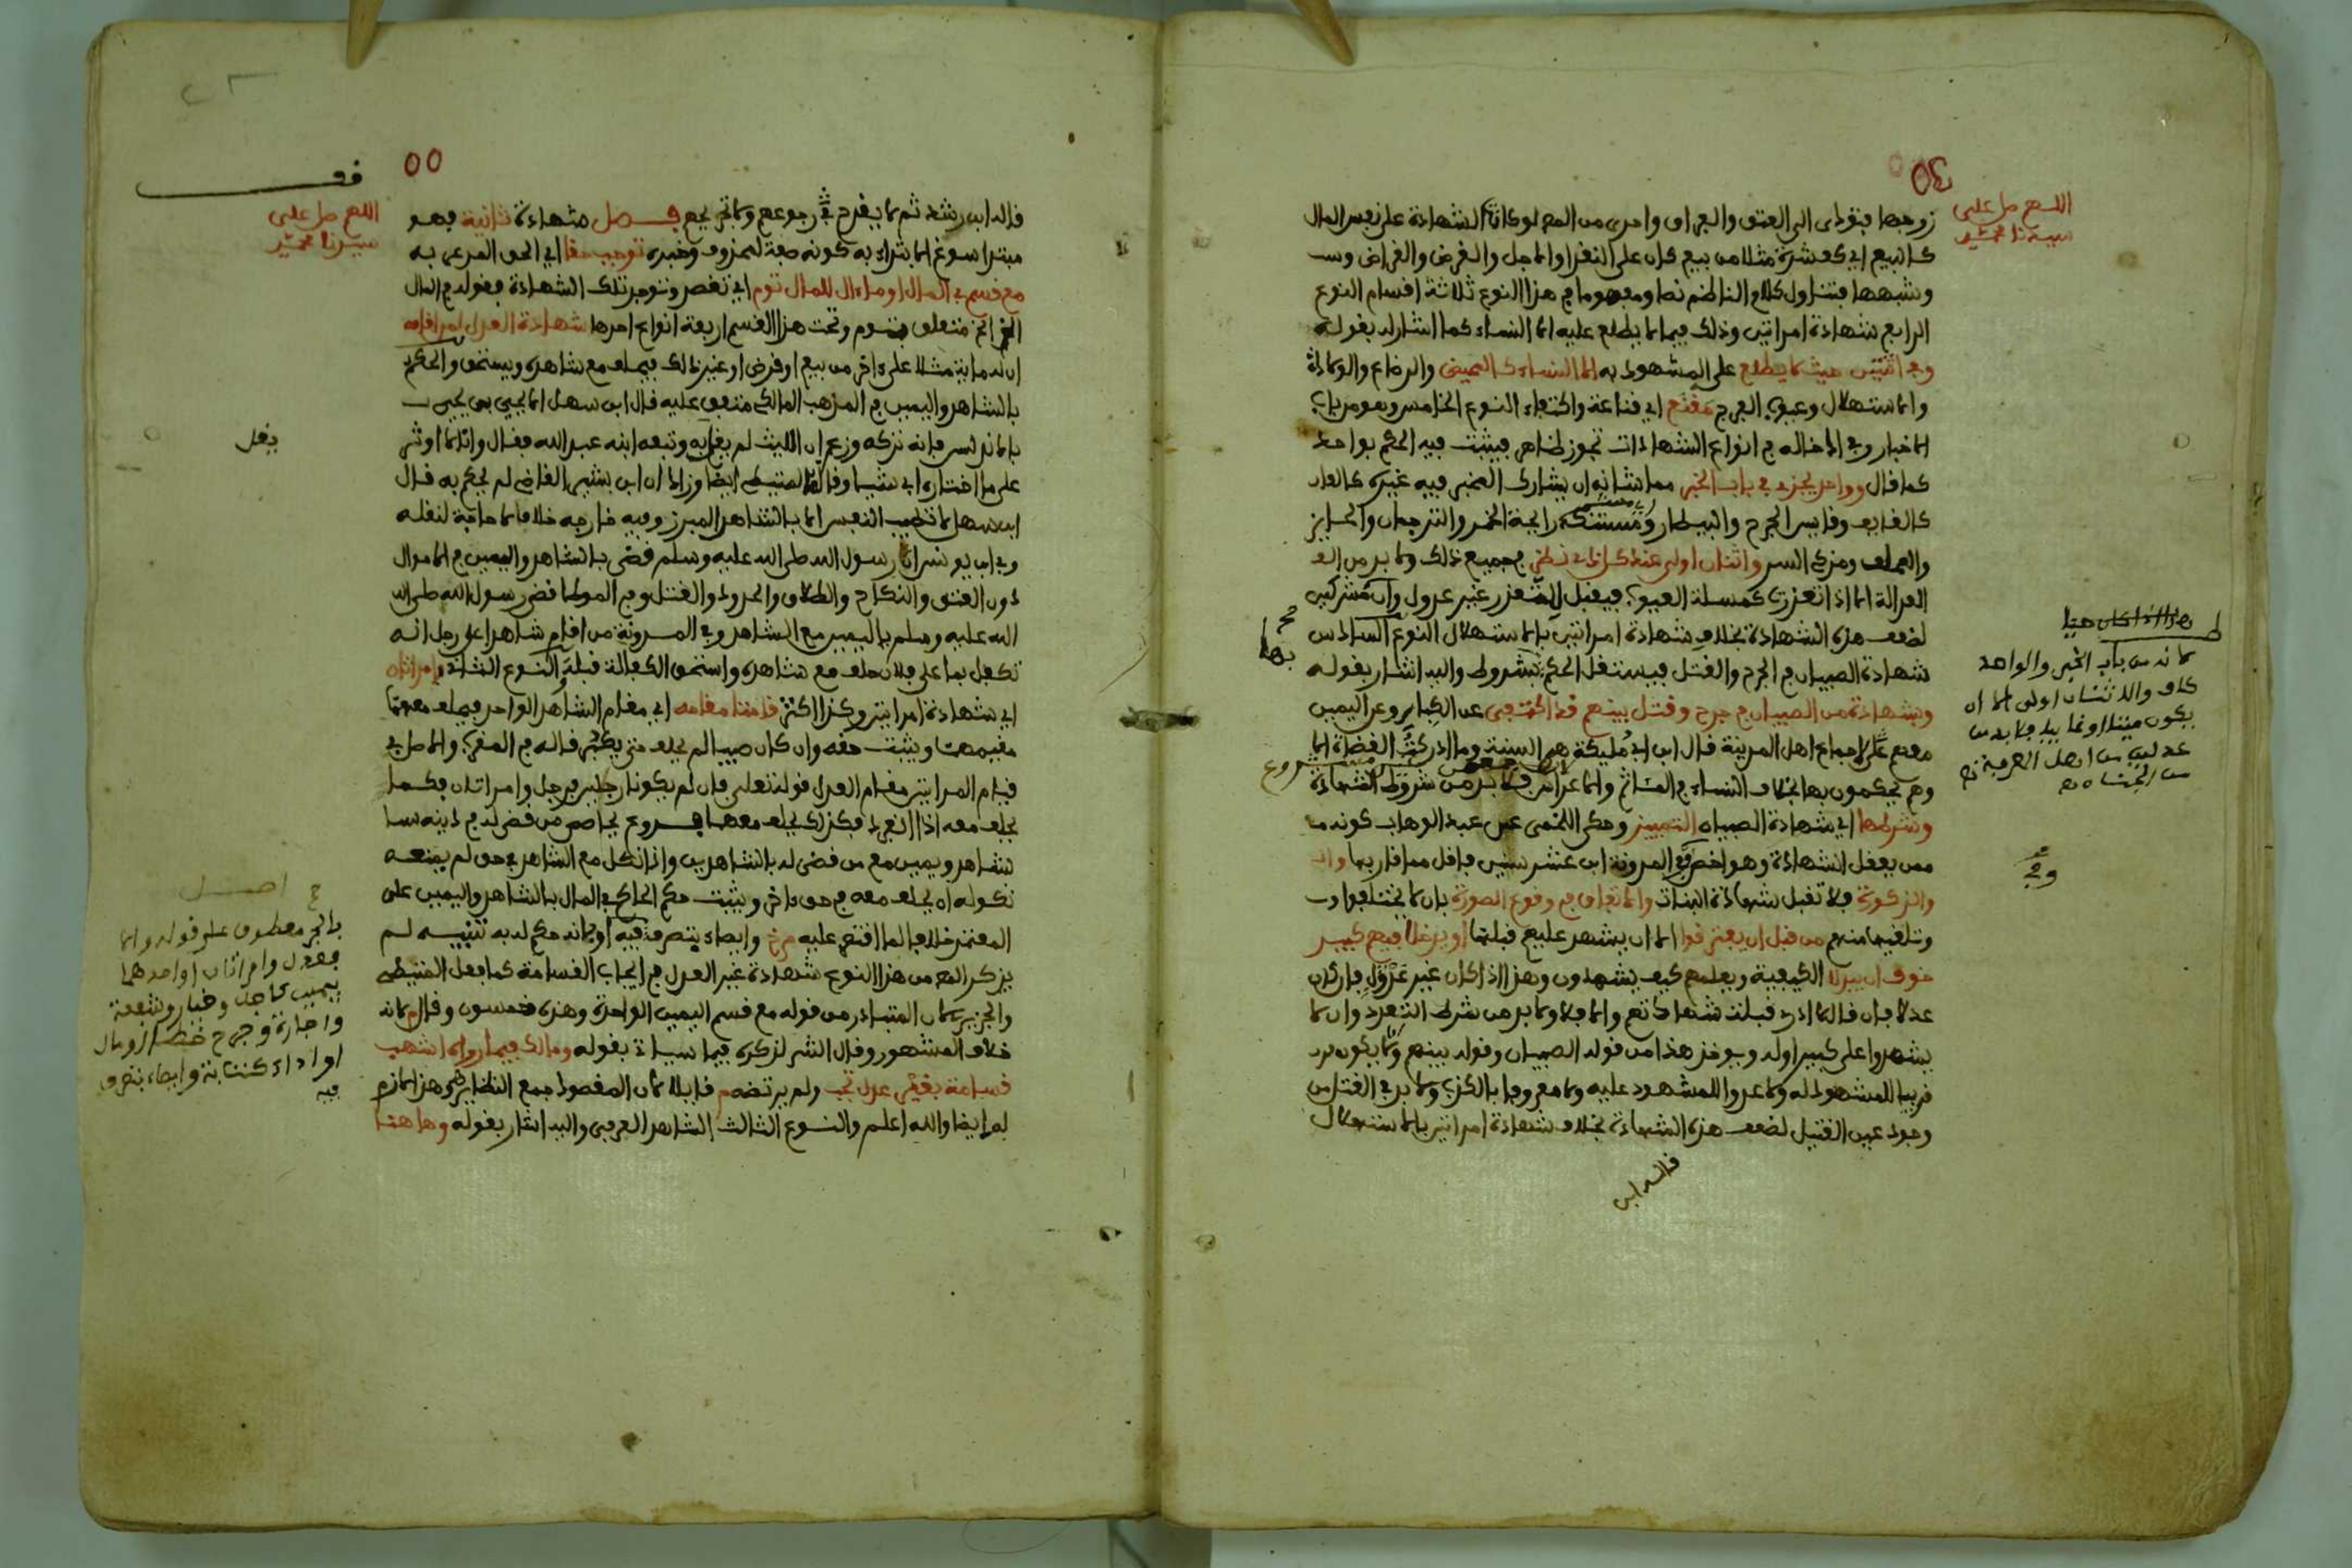 اللهم صل على
سيدنا محمد
٥٤
زوجها فيؤدى الى العتق والفراق واحرى من العدم لو كانت الشهادة على نفس المال
كالبيع اي كعشرة مثلا من بيع كان على النقد او الاجل والقرض والقراض
وشبهها فتناول كلام الناظم نصا ومفهوما من هذا النوع ثلاثة اقسام النوع
الرابع شهادة امراتين وذلك فيما لا يطلع عليه الا النساء كما اشار له بقوله
وفي اثنتين حيث لا يطلع على المشهود به الا النساء كالمحيض والرضاع والولادة
والاستهلال وعيوب الفرج مقنع اي قناعة واكتفاء النوع الخامس وهو من باب
الاخبار وفي ادخاله في انواع الشهادات تجوز ظاهر فيثبت فيه الحكم بواحد
كما قال وواحد يجزي في باب الخبر مما شانه ان يشارك المخبر فيه غيره
كالقايف وقايس الجرح والبيطار ومستنكه رايحة الخمر والترجمان
والمحلف ومزكي السر واثنان اولى عند كل ذي نظر في جميع ذلك ولا بد من
العدالة الا اذا تعذرت كمسئلة العيوب فيقبل للتعذر غير عدول وان مشركين
لضعف هذه الشهادة بخلاف شهادة امراتين بالاستهلال النوع السادس
شهادة الصبيان في الجرح والقتل فيستقل الحكم بشروط واليه اشار بقوله
وبشهادة من الصبيان في جرح وقتل بينهم قد اكتفي عن الكبار وعن اليمين
معهم على اجماع اهل المدينة قال ابن ابي مليكة هي السنة وما ادركت القضاة الا
وهم يحكمون بها بخلاف النساء في المآتم والاعراس فلا بد من شروط الشهادة
وشرطها اي شهادة الصبيان التمييز وحكى اللخمى عن عبد الوهاب كونه
ممن يعقل الشهادة وهو اخص وفي المدونة ابن عشر سنين فاقل مما قاربها
والذكورة فلا تقبل شهادة البنات والاتفاق في وقوع الصورة بان لا يختلفوا
وتلقيها منهم من قبل ان يفترقوا الا ان يشهد عليهم قبلها او يدخل فيهم كبير
خوف ان يبدلا الكيفية ويعلمهم كيف يشهدون وهذا اذا كان غير عدل فان كان
عدلا فان قال لا ادري قبلت شهادتهم والا فلا ولا بد من شرط التعدد وان لا
يشهدوا على كبير او له ويوخذ هذا من قوله الصبيان وقوله بينهم ولا يكون
قريبا للمشهود له ولا عدوا للمشهود عليه ولا معروفا بالكذب ولا بد في القتل من
وجود عين القتيل لضعف هذه الشهادة بخلاف شهادة امراتين بالاستهلال
قال ابن
هذا اذا كان حيا
لانه من باب الخبر والواحد
كاف والاثنان اولى الا ان
يكون ميتا او غايبا فلا بد من
عدلين من اهل المعرفة
بها
فروع
٥٥
اللهم صل على
سيدنا محمد
قال ابن رشد ثم لا يقدح رجوعهم ولا تجريحهم فصل شهادة ثانية فهو
مبتدا سوغ الابتداء به كونه صفة لمحذوف وخبره توجب حقا اي الحق المدعى به
مع قسم في المال او ما ءال للمال تؤم اي تقصد وتوجد تلك الشهادة فقوله في المال
متعلق بتؤم وتحت هذا القسم اربعة انواع احدها شهادة العدل لمن اقامه
ان له ماية مثلا على ءاخر من بيع او قرض او غير ذلك فيحلف مع شاهده ويستحق والحكم
بالشاهد واليمين في المذهب المالكي متفق عليه قال ابن سهل الا يحيى بن يحيى
بالاندلس فانه تركه وزعم ان الليث لم يفت به وتبعه ابنه عبد الله فقال وانا لا اوثر
على ما اختاره ابي شيئا وقاله المتيطي ايضا وزاد ان ابن بشير القاضي لم يحكم به قال
ابن سهل لا تطيب النفس الا بالشاهد المبرز وفيه خارجه خلاف لا حاجة لنقله
وفي ابن يونس ان رسول الله صلى الله عليه وسلم قضى بالشاهد واليمين في الاموال
دون العتق والنكاح والطلاق والحدود والقتل وفي الموطا قضى رسول الله صلى الله
الله عليه وسلم باليمين مع الشاهد وفي المدونة من اقام شاهدا على رجل انه
تكفل بما على فلان حلف مع شاهده واستحق الكفالة قبله والنوع الثاني وامراتان
اي شهادة امراتين وكذا اكثر قامتا مقامه اي مقام الشاهد الواحد فيحلف معهما
مقيمهما ويثبت حقه وان كان صبيا لم يحلف حتى يكبر قاله في المقرب والاصل في
قيام المراتين مقام العدل قوله تعلى فان لم يكونا رجلين فرجل وامراتان فكما
يحلف معه اذا انفرد فكذلك يحلف معهما فروع يحاصص من قضي له في دينه
بشاهد ويمين مع من قضى له بالشاهدين واذا نكل مع الشاهد في حق لم يمنعه
نكوله ان يحلف معه في حق ءاخر ويثبت حكم الحاكم في المال بالشاهد واليمين على
المعتمد خلافا لما اقتصر عليه وايصاء بتصرف فيه او بانه حكم له به تنبيه لم
يذكر المص من هذا النوع شهادة غير العدل في ايجاب القسامة كما فعل المتيطي
والجزيري لان المتبادر من قوله مع قسم اليمين الواحدة وهذه خمسون وقال لانه
خلاف المشهور وقال الشر لذكره فيما سياتي بقوله ومالك فيما رواه اشهب
قسامة بغير عدل تجب ولم يرتضه قايلا لان المقصود جمع النظاير وهذا لازم
له ايضا والله اعلم والنوع الثالث الشاهد العرفي واليه اشار بقوله وها هنا
يفل
بالجر معطوف على قوله
فعدل وامراتان او احدهما
بيمين كاجل وخيار وشفعة
واجارة وجرح خطا او مال
او اداء كتابة وايصاء بتصرف
فيه